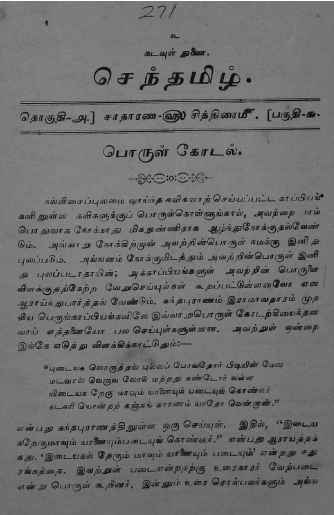 271
உ
கடவுள் துணை.
செந்தமிழ்.
தொகுதி-அ.] சாதாரண-ஹு சித்திரைமீ. [பகுதி-சு.
பொருள் கோடல்.
கல்விசைப்புலமை வாய்ந்த கவிகளாற் செய்யப்பட்ட காப்பியங்
களிலுள்ள கவிகளுக்குப் பொருள்கொள்ளுங்கால், அவற்றை நாம்
பொதுவாக நோக்காது மிகநுண்ணிதாக ஆழ்ந்துநோக்குதல்வேண்
டும். அவ்வாறு நோக்கிற்றான் அவற்றின்பொருள் நமக்கு இனிது
புலப்படும். அங்ஙனம் நோக்குமிடத்தும் அவற்றின்பொருள் இனி
து புலப்படாதாயின்; அக்காப்பியங்களுள் அவற்றின் பொருளை
விளக்குதற்கேற்ற வேறுசெய்யுள்கள் கூறப்பட்டுள்ளனவோ என
ஆராய்ந்துபார்த்தல் வேண்டும். கந்தபுராணம் இராமாவதாரம் முத
லிய பெருங்காப்பியங்களிலே இவ்வாறுபொருள் கோடற்கியைந்தன
வாய் எத்தனையோ பல செய்யுள்களுள்ளன. அவற்றுள் ஒன்றை
இங்கே எடுத்து விளக்கிக்காட்டுதும்:—
"புடையக லொருத்தல் புல்லப் போவதோர் பிடியின் மேவு
மடவரல் வெருவ லோடு மற்றது கண்டோர் வள்ள
லிடையக றேரு மாவும் யானையும் படையுங் கொண்டீர்
நடகரி பொன்றற் கஞ்சுங் காரணம் யாதோ வென்னா."
என்பது கந்தபுராணத்திலுள்ள ஒரு செய்யுள். இதில், "இடைய
கறேருமாவும் யானையும்படையுங் கொண்டீர்." என்பது ஆராயத்தக்
கது. 'இடையகல் தேரும் மாவும் யானையும் படையும்' என்பது சது
ரங்கத்தை. இவற்றுள் படைஎன்றதற்கு உரைகாரர் வேற்படை
என்று பொருள் கூறினர், இன்னும் உரை சொல்பவர்களும் அங்ங